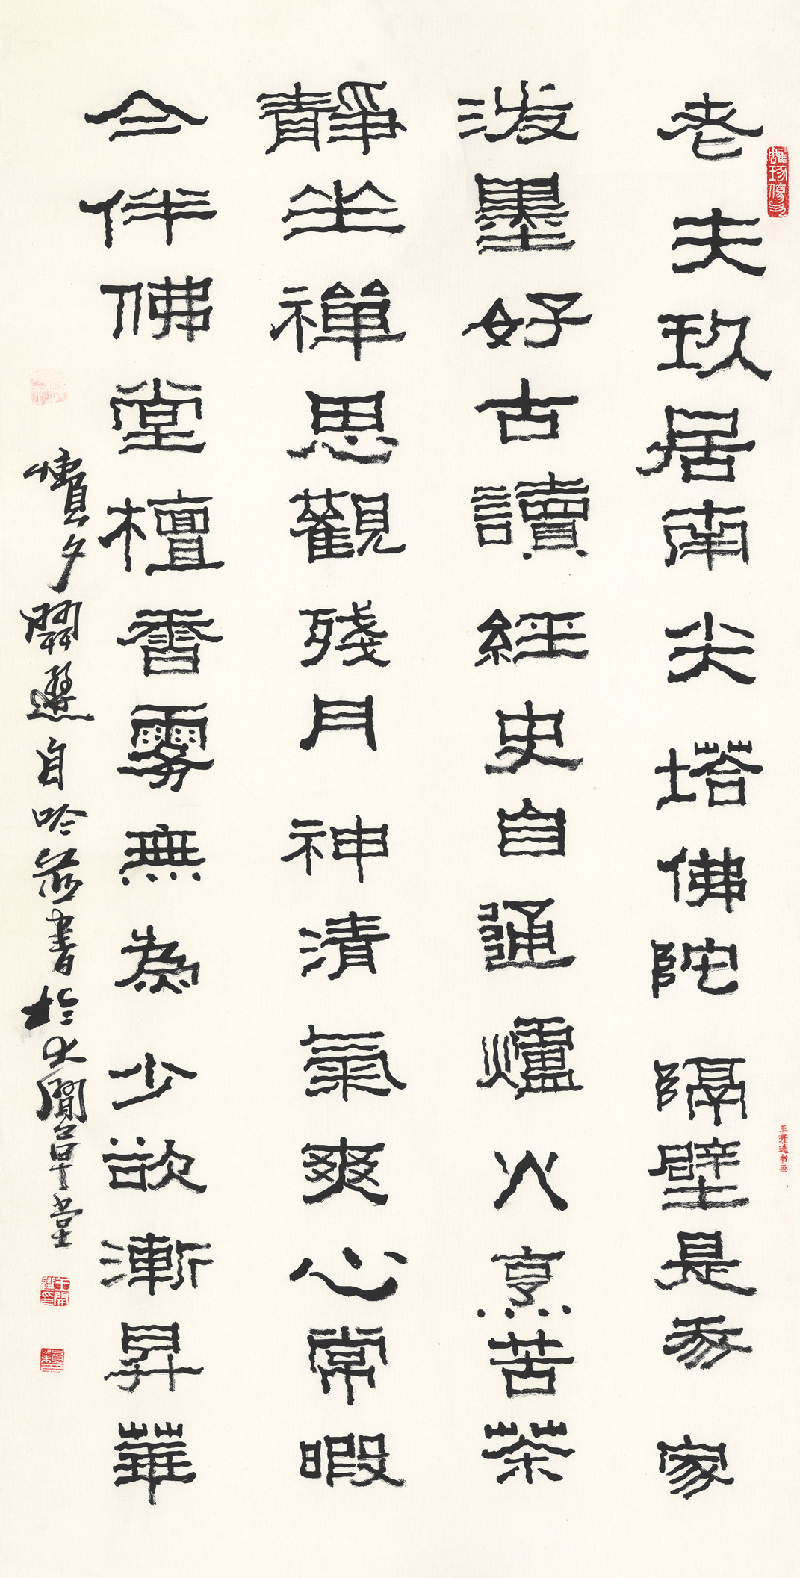 老夫玖居南尖塔佛陀隔壁是家
泼墨好古讀經史自通爐火烹苦茶
靜坐禪思觀殘月神清氣爽心常暇
今伴佛堂檀香霧無為少欲漸昇華
夕自吟並書於大草堂